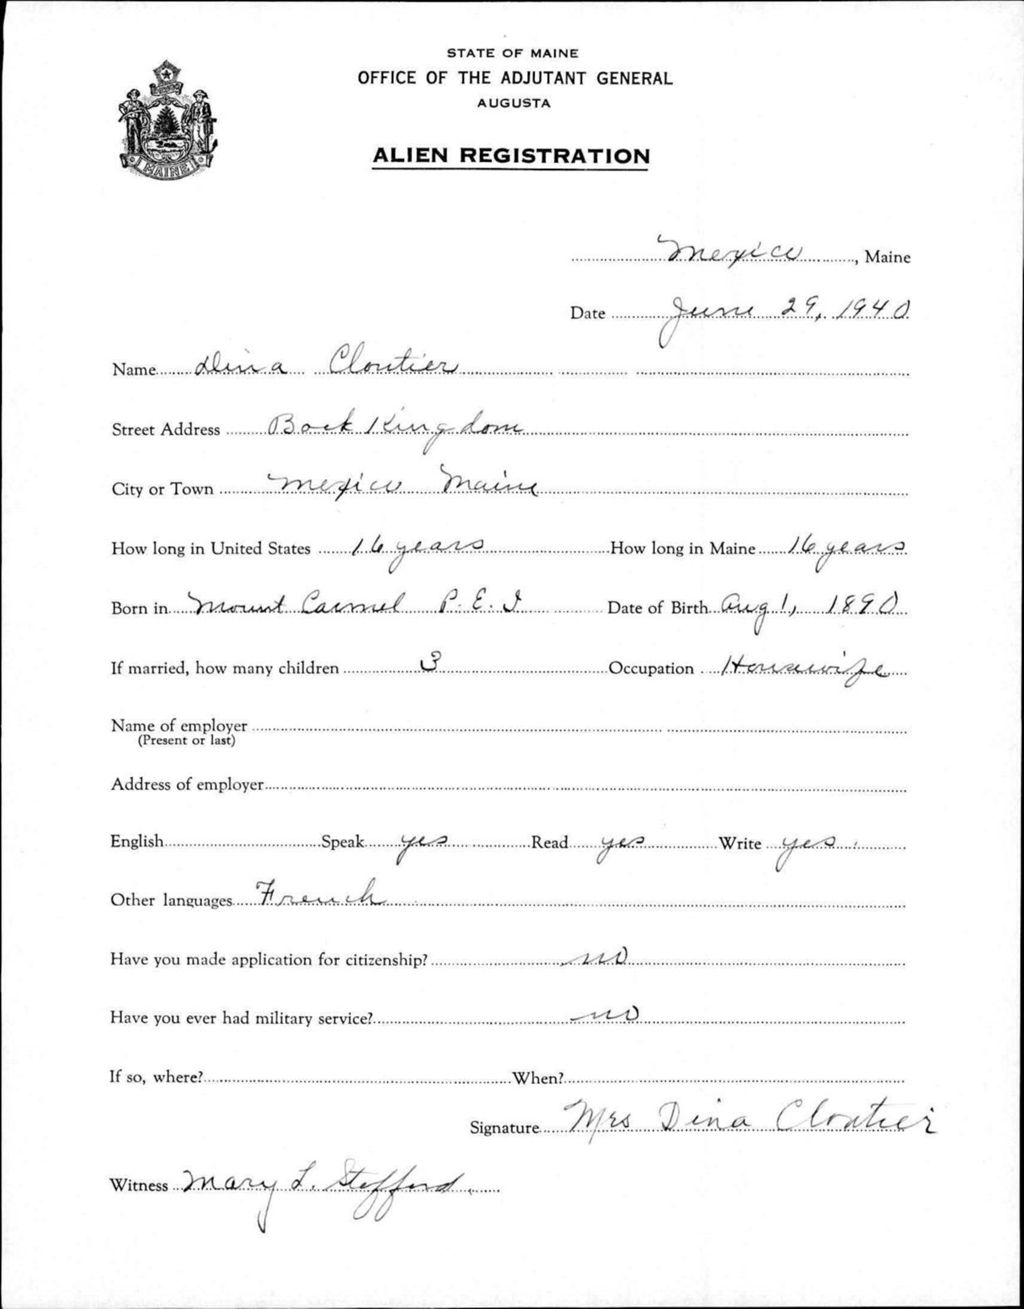 STATE OF MAINE
OFFICE OF THE ADJUTANT GENERAL
AUGUSTA
ALIEN REGISTRATION
MAINE
Mexico, Maine
Date June 29, 1940
Name Dina Cloutier
Street Address Back Kingdom
City or Town Mexico Maine
How long in United States 16 years How long in Maine 16 years
Born in Mount Carmel P. E. I Date of Birth Aug 1, 1890
If married, how many children 3 Occupation Housewife
Name of employer
(Present or last)
Address of employer
English Speak yes Read yes Write yes
Other languages French
Have you made application for citizenship? no
Have you ever had military service? no
If so, where? When?
Signature Mrs Dina Cloutier
Witness Mary L.